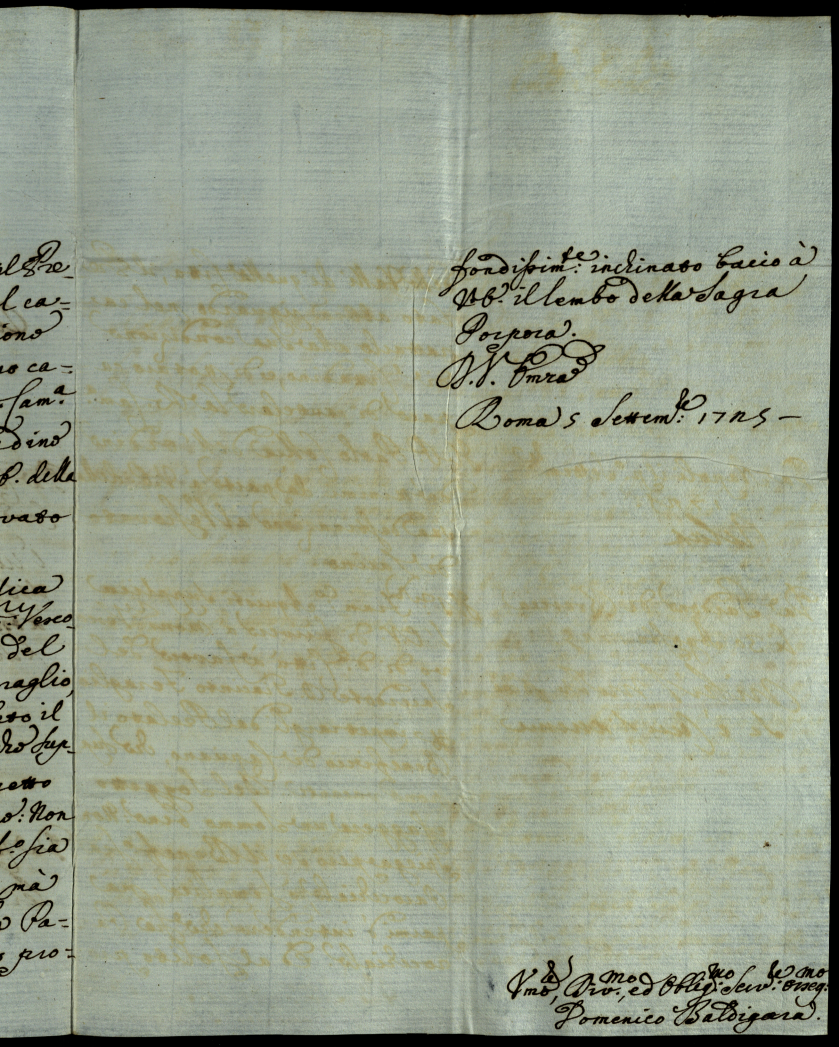 al Pre-
l ca=
ione
no ca=
Cam.ª
dino
b. della
vato
lica
Vesco-
del
naglio,
to il
dro sup-
etto
o: Non
sia
mà
Pa=
pro=
fondissim.te inchinato bacio à
V'b.ª il lembo della Sagra
Porpora.
D. V. Emza
Roma 5 Settem.bre 1725 —
Vmo, Div.mo, ed Oblig.mo Serv.re osseq.mo
Domenico Baldigara.